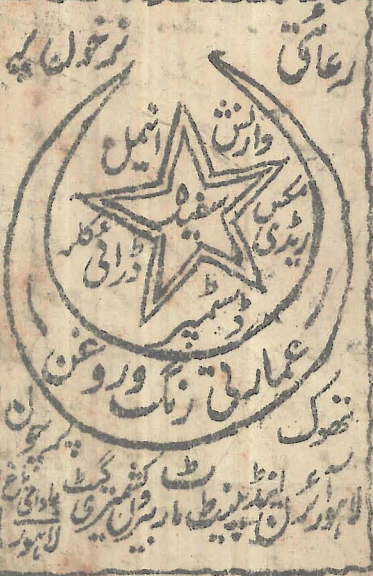 رعائتی نرخوں پر
وارنش
انیمل
سفیدہ
مکس
ریڈی
ڈرائی کلر
ڈسٹمپر
عمارتی رنگ و روغن
تھوک
پرچون
لاہور آئرن اینڈ پینٹ مارٹ
کشمیری گیٹ
لاہور